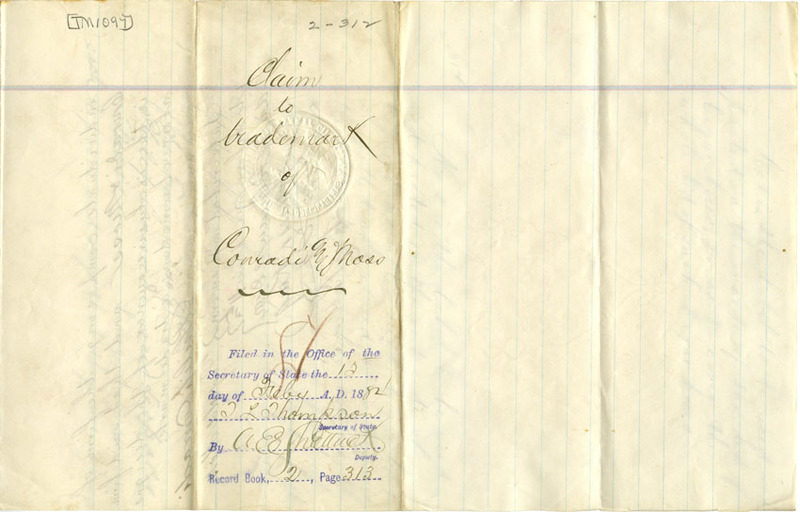 [TM1094]
2-312
Claim
to
trademark
of
Conradi & Moss
Filed in the Office of the
Secretary of State the 12
day of Feby A.D. 1882
D L Thompson
Secretary of State.
By A E Shattuck
Deputy.
Record Book, 2, Page 313